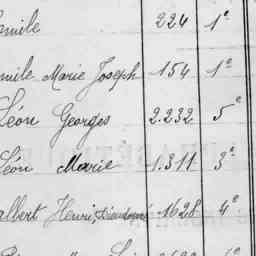 amile 224 1e
mile Marie Joseph 154 1e
Léon Georges 2.232 5e
Léon Marie 1.311 3e
albert Henri, Dieudonné 1628 4e